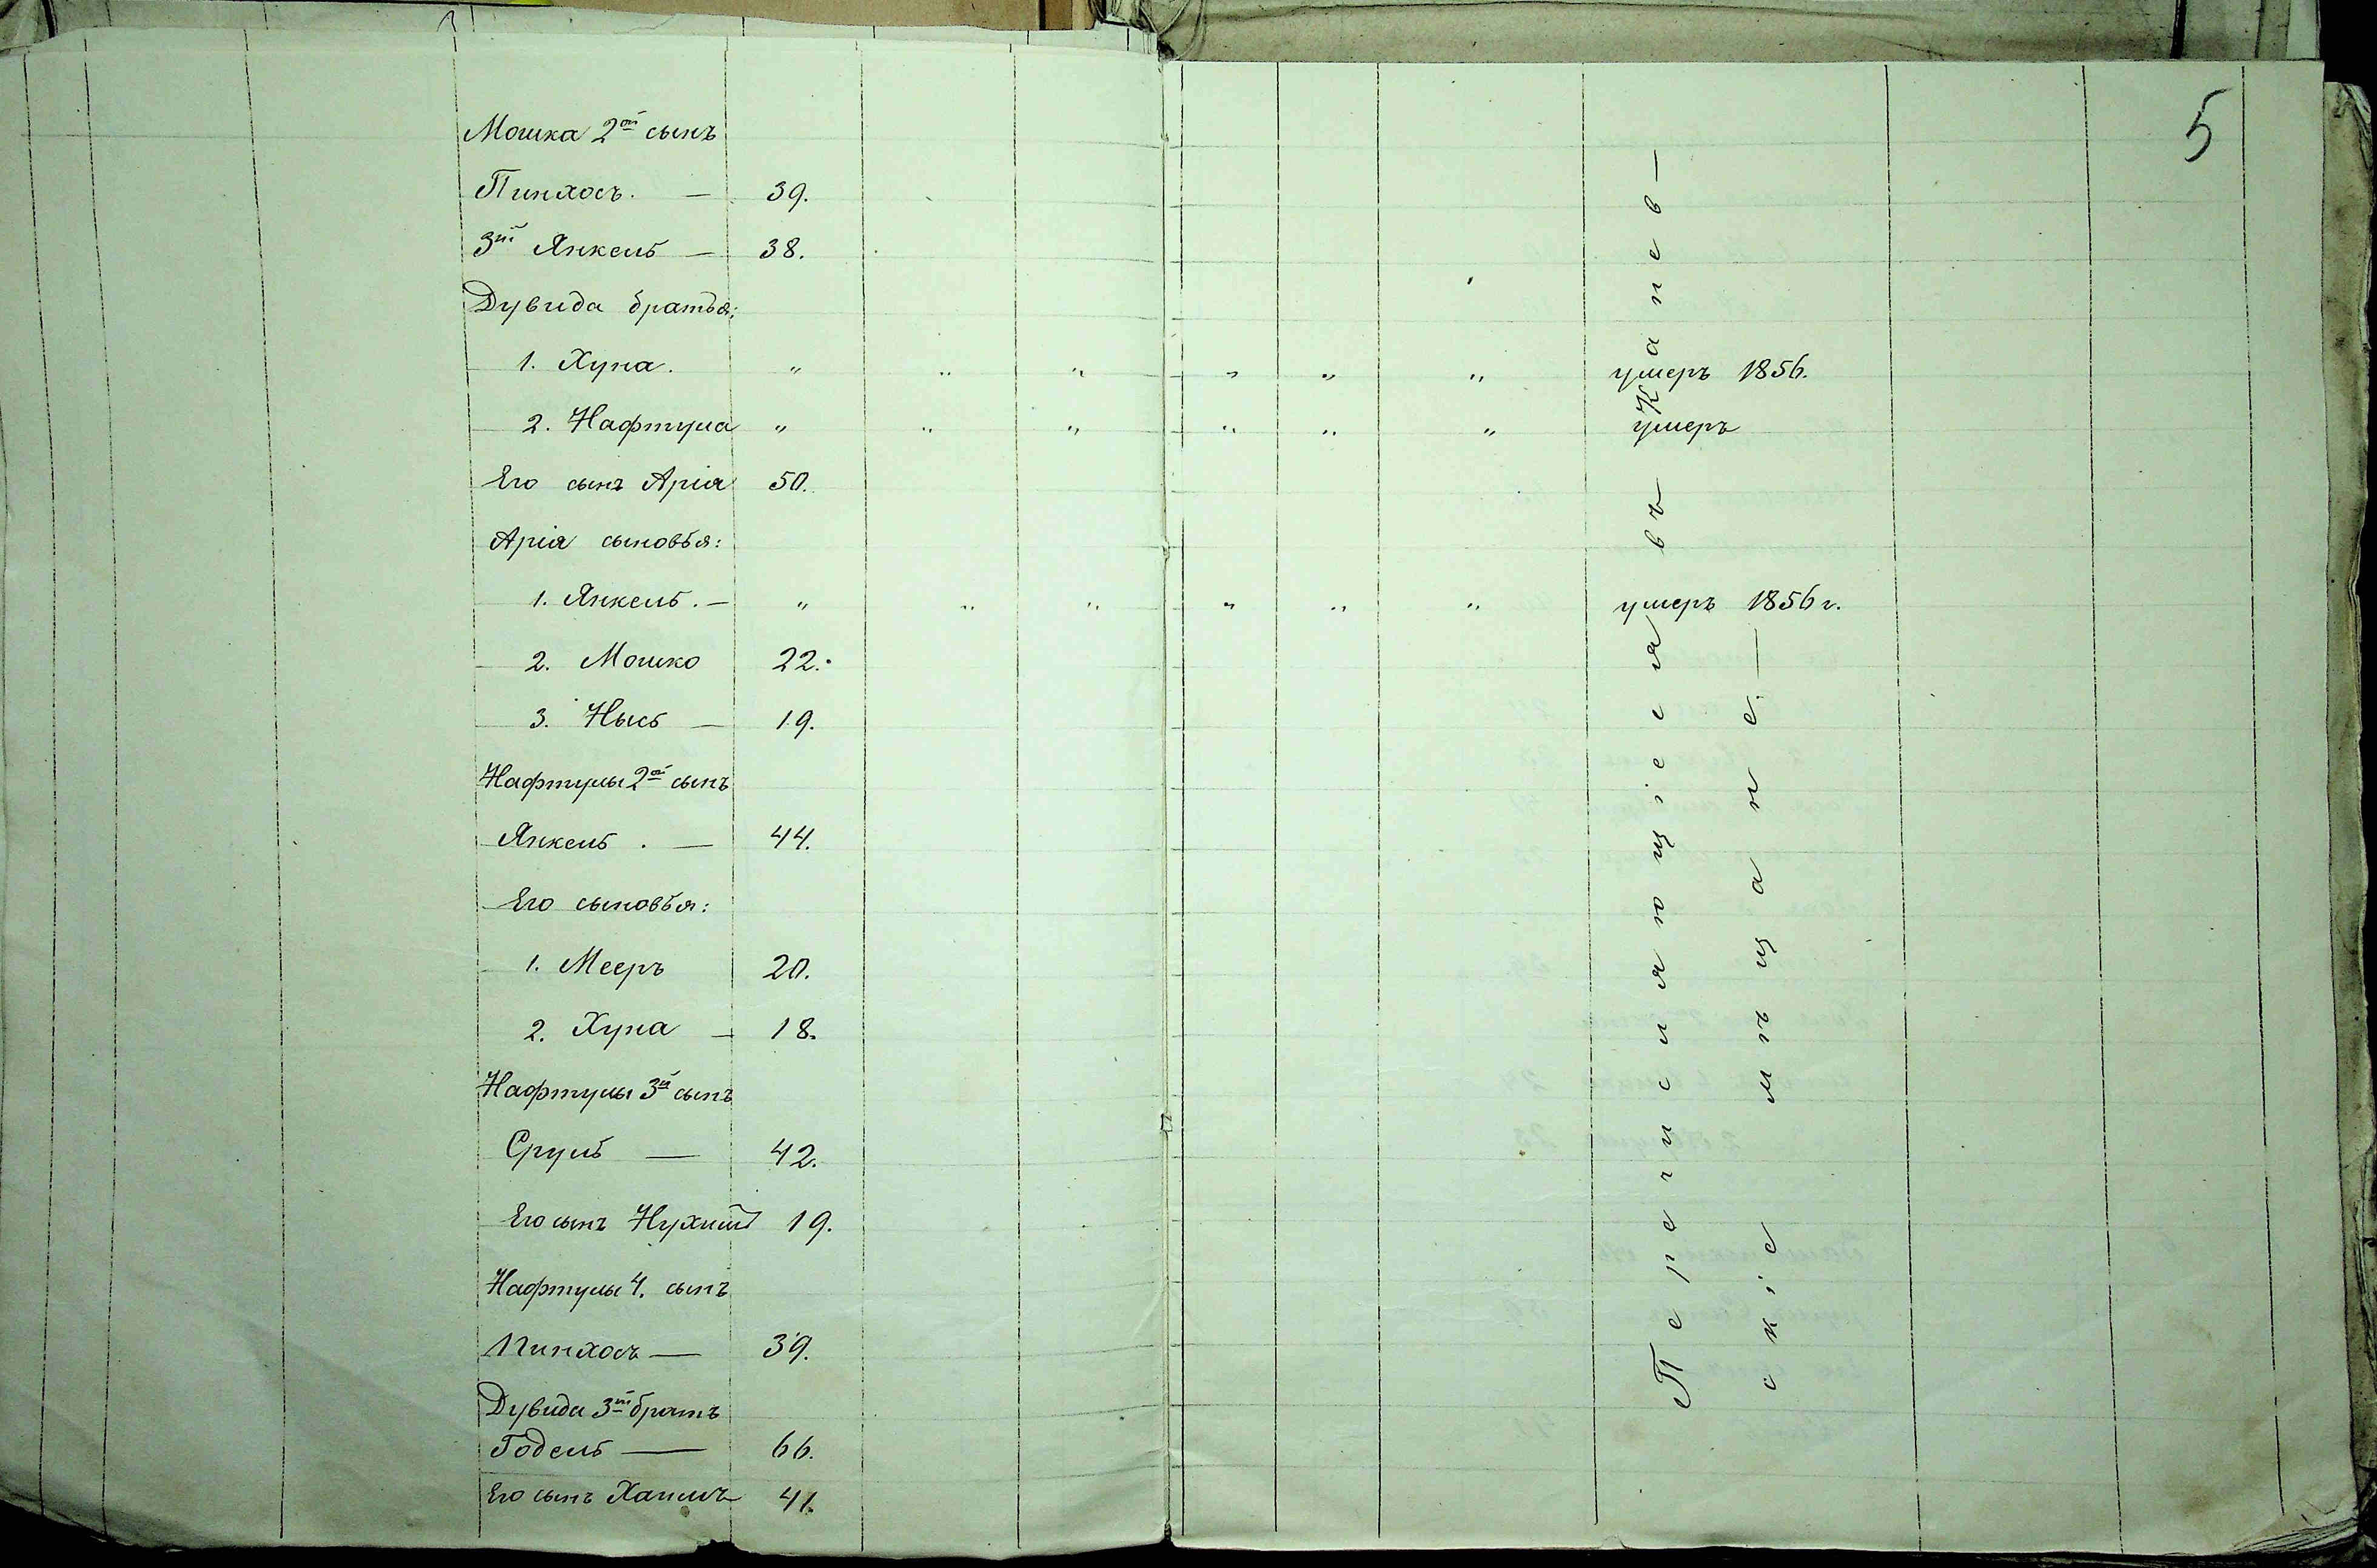 5
Мошка 2ой сынъ
Пинхосъ. — 39.
3й Янкель — 38.
Дувида братья:
1. Хуна. " " " " " " умеръ 1856.
2. Нафтула " " " " " " умеръ
Его сынъ Аріа 50.
Аріа сыновья:
1. Янкель. — " " " " " " умеръ 1856 г.
2. Мошко 22.
3. Нысь — 19.
Нафтулы 2ой сынъ
Янкель. — 44.
Его сыновья:
1. Мееръ 20.
2. Хуна — 18.
Нафтулы 3й сынъ
Сруль — 42.
Его сынъ Нухимъ 19.
Нафтулы 4. сынъ
Пинхосъ — 39.
Дувида 3ій братъ
Годель — 66.
Его сынъ Хаимъ 41.
Перечисляющіеся въ Канев—
скіе мѣщане. —